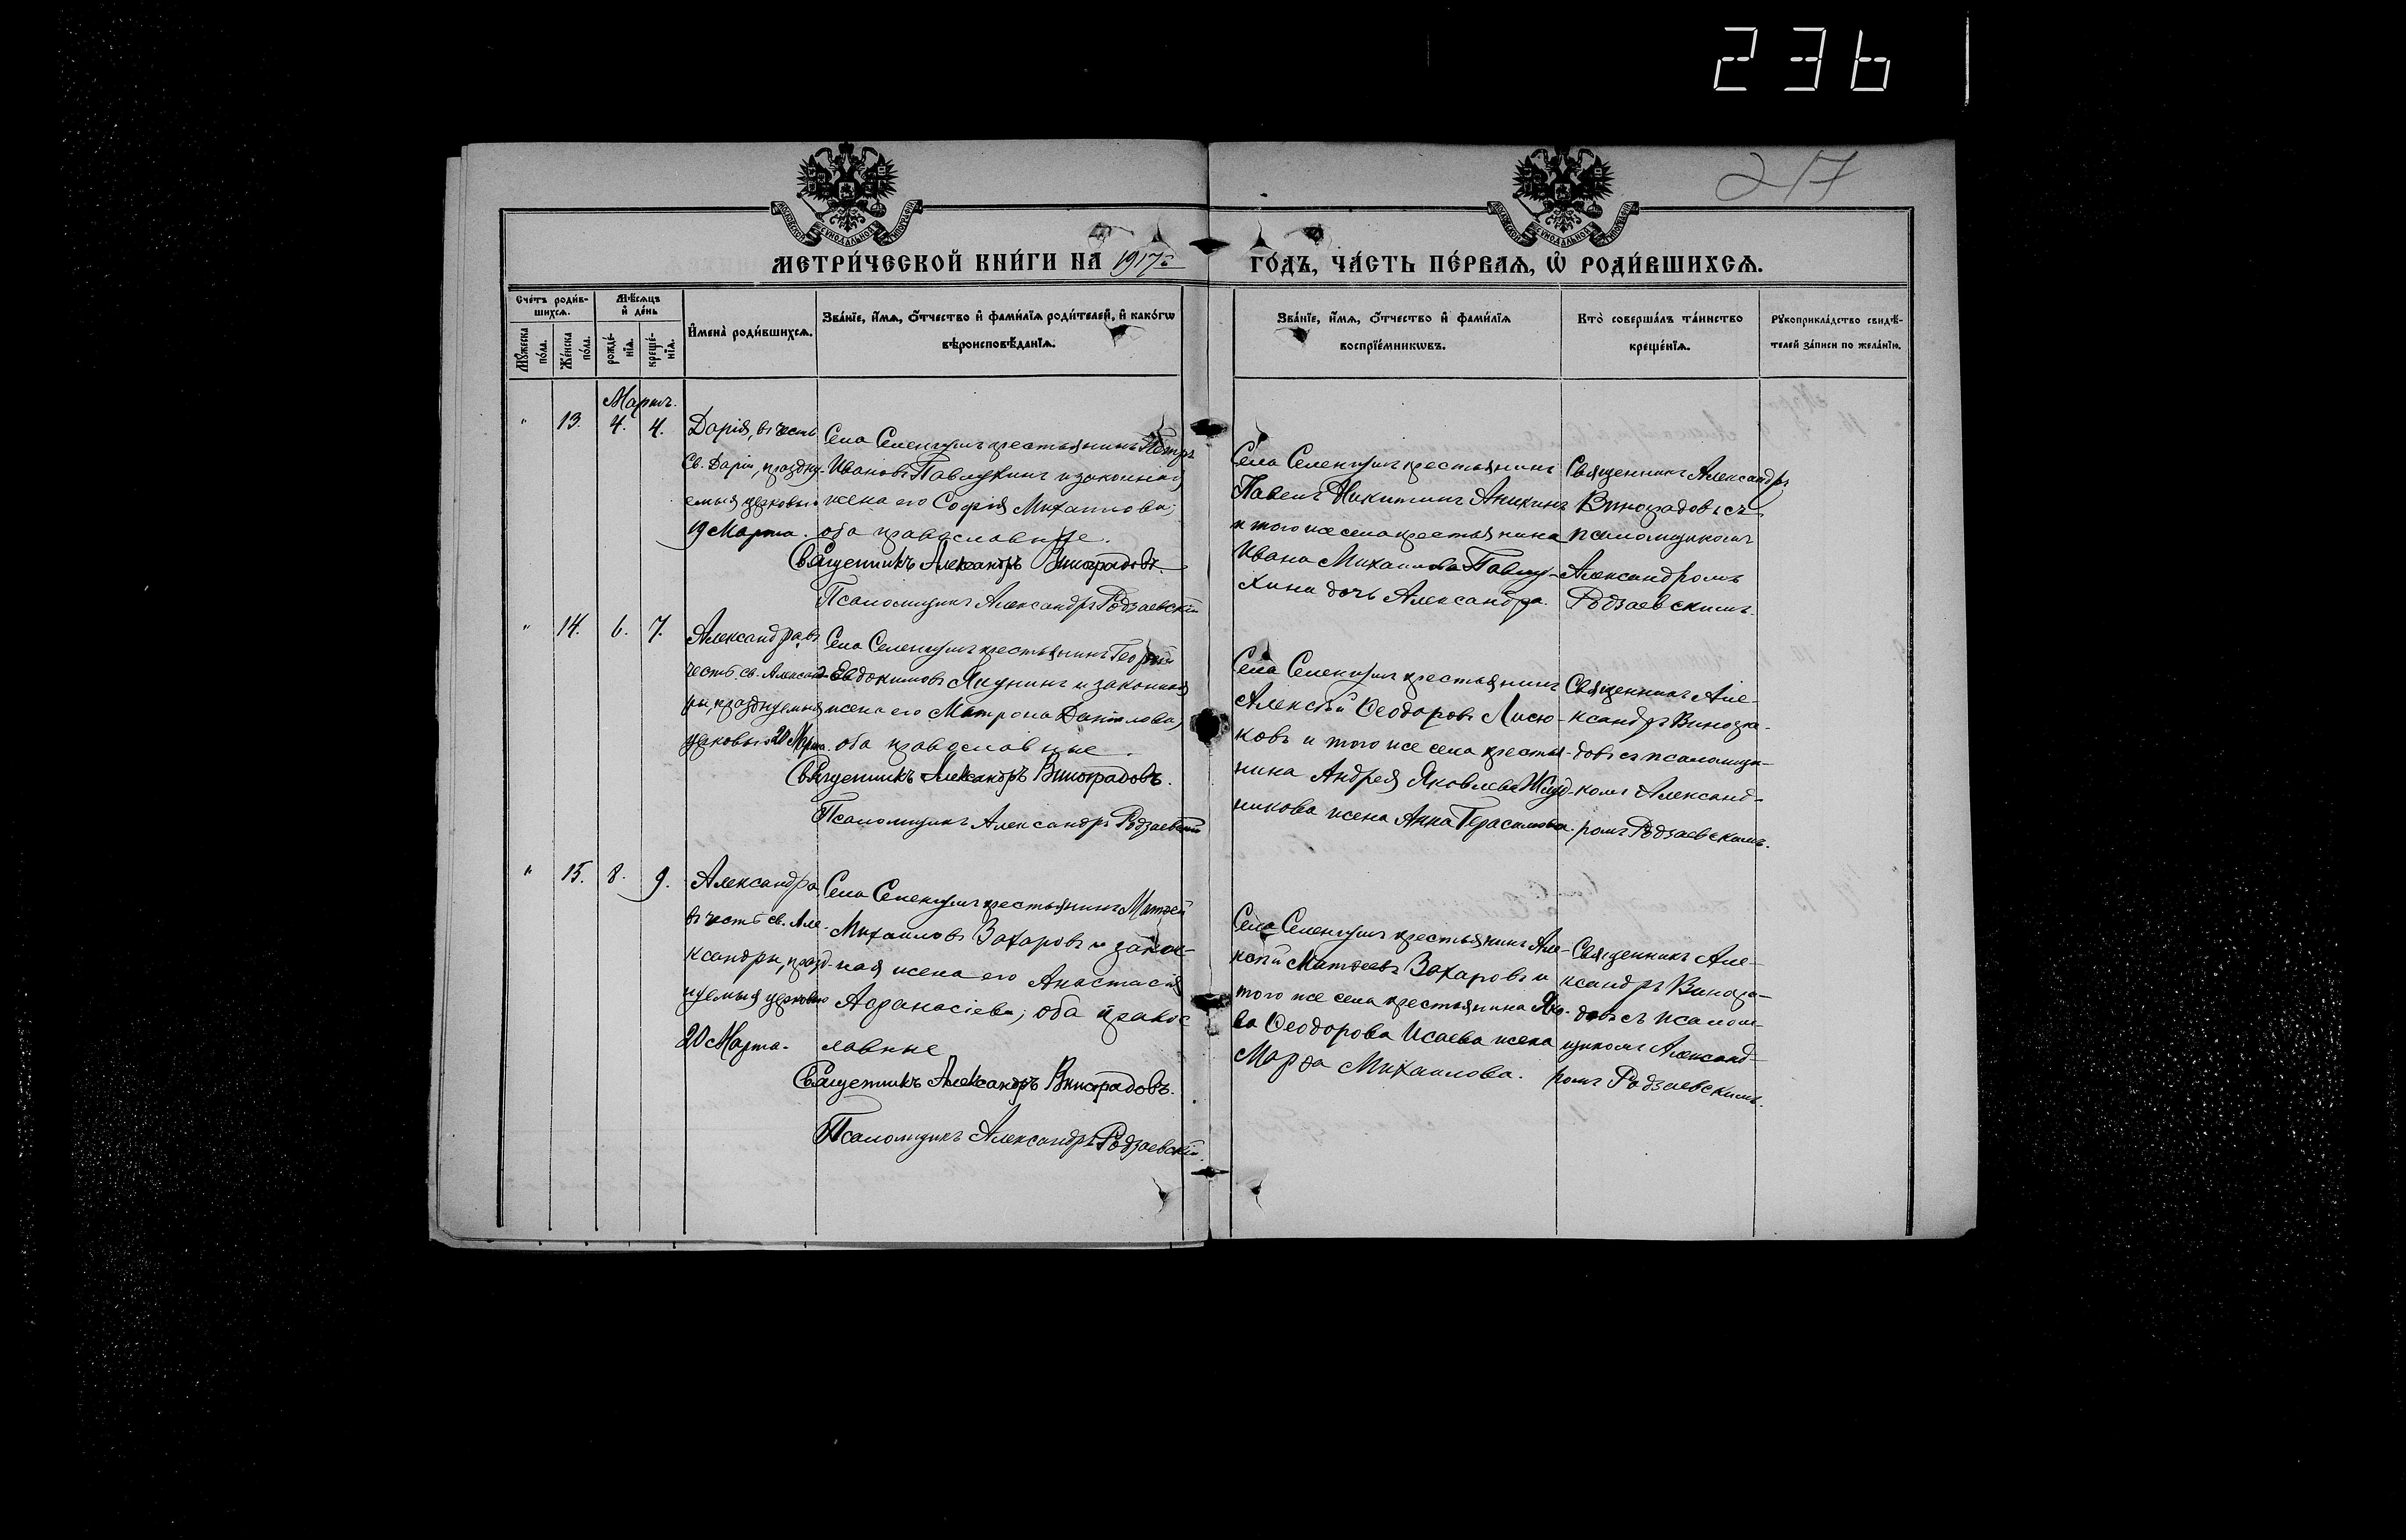 236
217
МОСКОВСКОЙ СѴНОДАЛЬНОЙ ТИПОГРАФІИ
МОСКОВСКОЙ СѴНОДАЛЬНОЙ ТИПОГРАФІИ
МЕТРИ́ЧЕСКОЙ КНИ́ГИ НА 1917й ГО́ДЪ, ЧА́СТЬ ПЕ́РВАѦ, Ѡ҆ РОДИ́ВШИХСѦ.
Сче́тъ роди́в-
шихсѧ.
Мꙋ́жеска
по́ла.
Же́нска
по́ла.
Мѣ́сѧцъ
и҆ де́нь
рожде́-
нїѧ.
креще́-
нїѧ.
И҆мена̀ роди́вшихсѧ.
Зва́нїе, и҆́мѧ, ѻ҆́тчество и҆ фами́лїѧ роди́телей, и҆ како́гѡ
вѣроисповѣ́данїѧ.
Зва́нїе, и҆́мѧ, ѻ҆́тчество и҆ фами́лїѧ
воспрїе́мникѡвъ.
Кто̀ соверша́лъ та́инство
креще́нїѧ.
Рꙋкоприкла́дство свидѣ́-
телей за́писи по жела́нїю.
Мартъ.
" 13. 4. 4.
Дарія, въ честь
Св. Даріи, праздну-
емыя церковью
19 Марта.
Села крестьянинъ Петръ
Ивановъ Павлухинъ и законная
жена его Софія Михаилова;
оба православные.
Священникъ Александръ Виноградовъ.
Псаломщикъ Александръ Родзаевскій
Села крестьянинъ
Павелъ Никитинъ Аникинъ
и того же села крестьянина
Ивана Михаилова Павлу-
хина дочь Александра.
Священникъ Александръ
Виноградовъ съ
псаломщикомъ
Александромъ
Родзаевскимъ.
" 14. 6. 7.
Александра, въ
честь св. Александ-
ры, празднуемыя
церковью 20 Марта.
Села крестьянинъ Георгій
Евдокимовъ Якунинъ и законная
жена его Матрона Данілова;
оба православные.
Священникъ Александръ Виноградовъ.
Псаломщикъ Александръ Родзаевскій
Села крестьянинъ
Алексѣй Ѳеодоровъ
ковъ и того же села крестья-
нина Андрея Яковлева
никова жена Анна Герасимова.
Священникъ Але-
ксандръ Виногра-
довъ съ псаломщи-
комъ Александ-
ромъ Родзаевскимъ.
" 15. 8. 9.
Александра,
въ честь св. Але-
ксандры, празд-
нуемыя церковью
20 Марта.
Села крестьянинъ Матѳей
Михаиловъ Захаровъ и закон-
ная жена его Анастасія
Аѳанасіева; оба правос
лавные
Священникъ Александръ Виноградовъ.
Псаломщикъ Александръ Родзаевскій.
Села крестьянинъ Але-
ксѣй Матѳеевъ Захаровъ и
того же села крестьянина Яко-
ва Ѳеодорова Исаева жена
Марѳа Михаилова.
Священникъ Але-
ксандръ Виногра-
довъ съ псалом-
щикомъ Александ-
ромъ Родзаевскимъ.